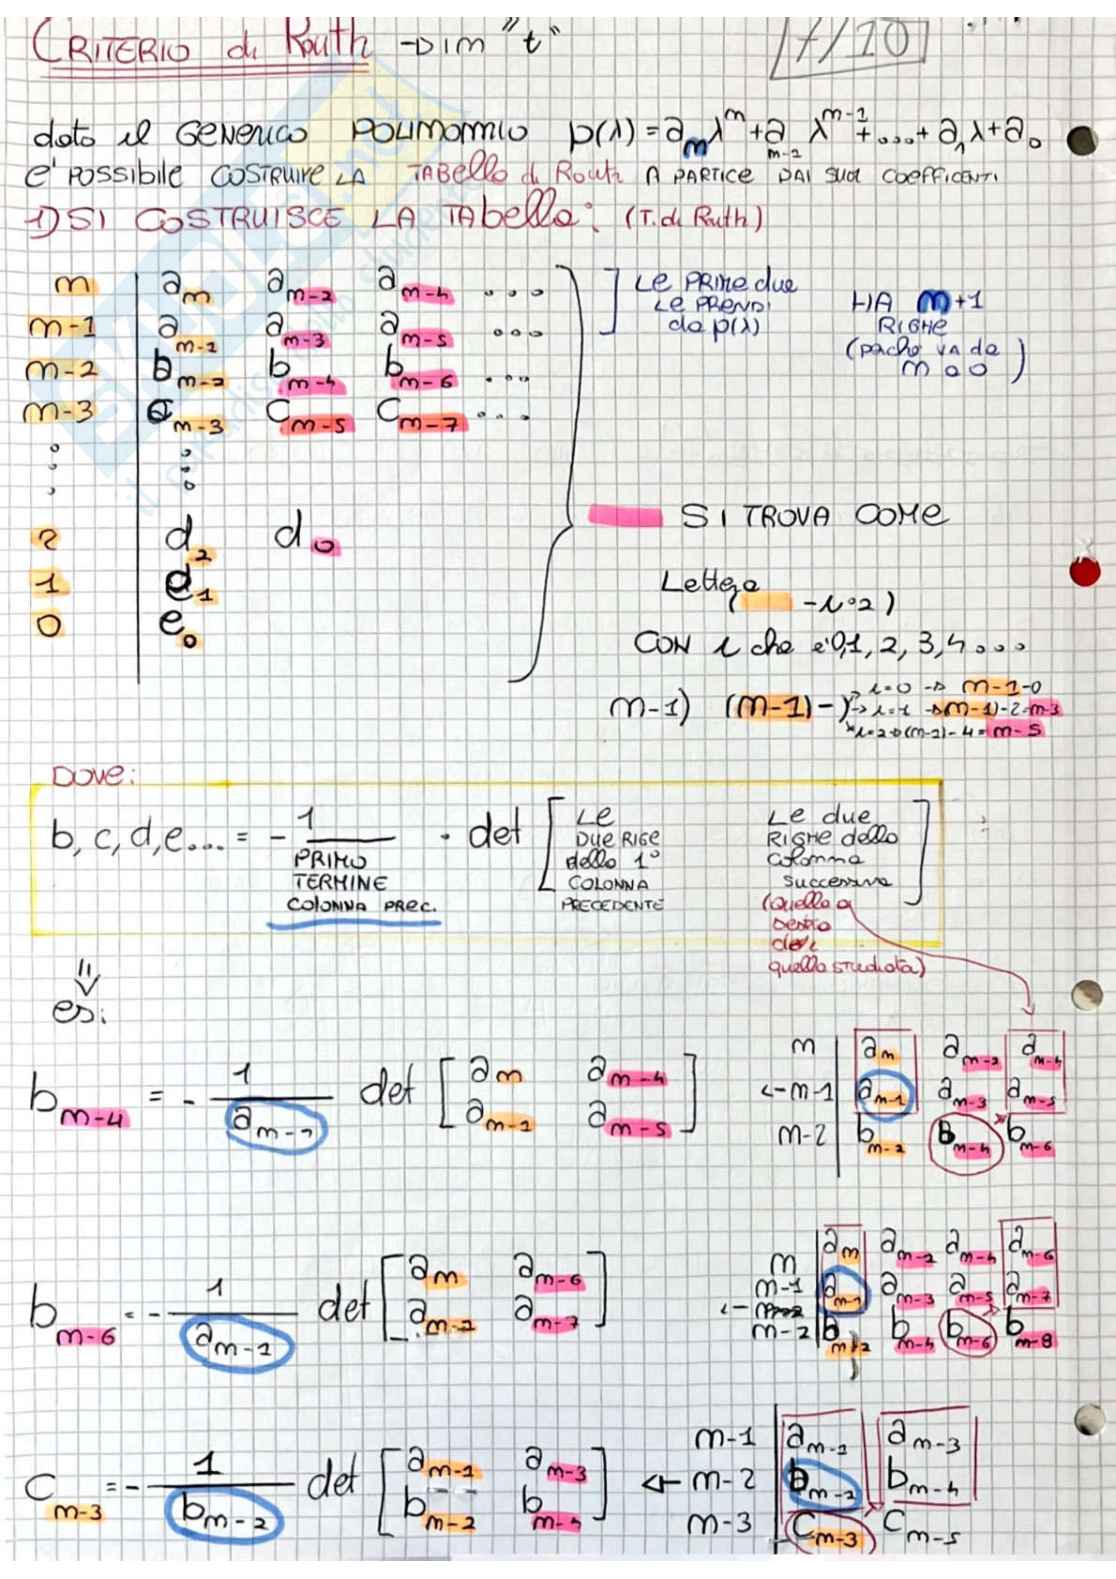 CRITERIO di Routh →DIM "t"
7/10
dato il GENERICO POLINOMIO p(λ)=a_m λ^m+a_m-1 λ^m-1+...+a_1 λ+a_0
e' POSSIBILE COSTRUIRE LA TABella di Routh A PARTICE DAI SUOI COEFFICENTI
1) SI COSTRUISCE LA TAbella: (T. di Routh)
m | a_m a_m-2 a_m-4 ...
m-1 | a_m-1 a_m-3 a_m-5 ...
m-2 | b_m-2 b_m-4 b_m-6 ...
m-3 | c_m-3 c_m-5 c_m-7 ...
Le PRIME due
Le PRENDI
da p(λ)
HA m+1
RIGHE
(pache va da
m a 0)
2 | d_2 d_0
1 | e_1
0 | e_0
SI TROVA COME
Lettera
( -i·2)
CON i che e' 0,1, 2, 3,4 ...
m-1) (m-1)-)
→ i=0 → m-1-0
→ i=1 → (m-1)-2=m-3
i=2→(m-1)-4=m-5
DOVE:
b, c, d, e... = - 1 / PRIMO TERMINE COLONNA PREC. · det
Le
DUE RIGE
della 1°
COLONNA
PRECEDENTE
Le due
RIGHE della
colonna
successiva
(quella a
destra
di
quella studiata)
es:
b_m-4 = - 1/a_m-1 det [a_m a_m-4
a_m-1 a_m-5]
m | a_m a_m-2 a_m-4
←m-1 | a_m-1 a_m-3 a_m-5
m-2 | b_m-2 b_m-4 b_m-6
b_m-6 = - 1/a_m-1 det [a_m a_m-6
a_m-1 a_m-7]
m | a_m a_m-2 a_m-4 a_m-6
m-1 | a_m-1 a_m-3 a_m-5 a_m-7
m-2 | b_m-2 b_m-4 b_m-6 b_m-8
c_m-3 = - 1/b_m-2 det [a_m-1 a_m-3
b_m-2 b_m-4]
m-1 | a_m-1 a_m-3
← m-2 | b_m-2 b_m-4
m-3 | c_m-3 c_m-5